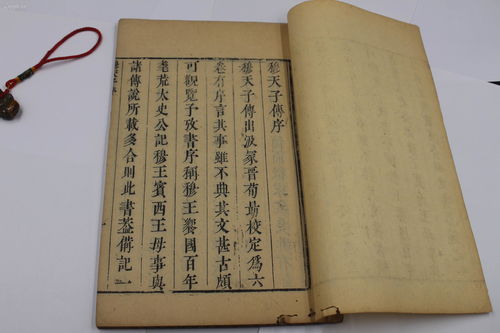 穆天子傳序
穆天子傳出汲冢晉荀勗校定爲六
卷有序言其事雖不典其文甚古頗
可觀覽予攷書序稱穆王饗國百年
耄荒太史公記穆王賓西王母事與
諸傳說所載多合則此書蓋備記一